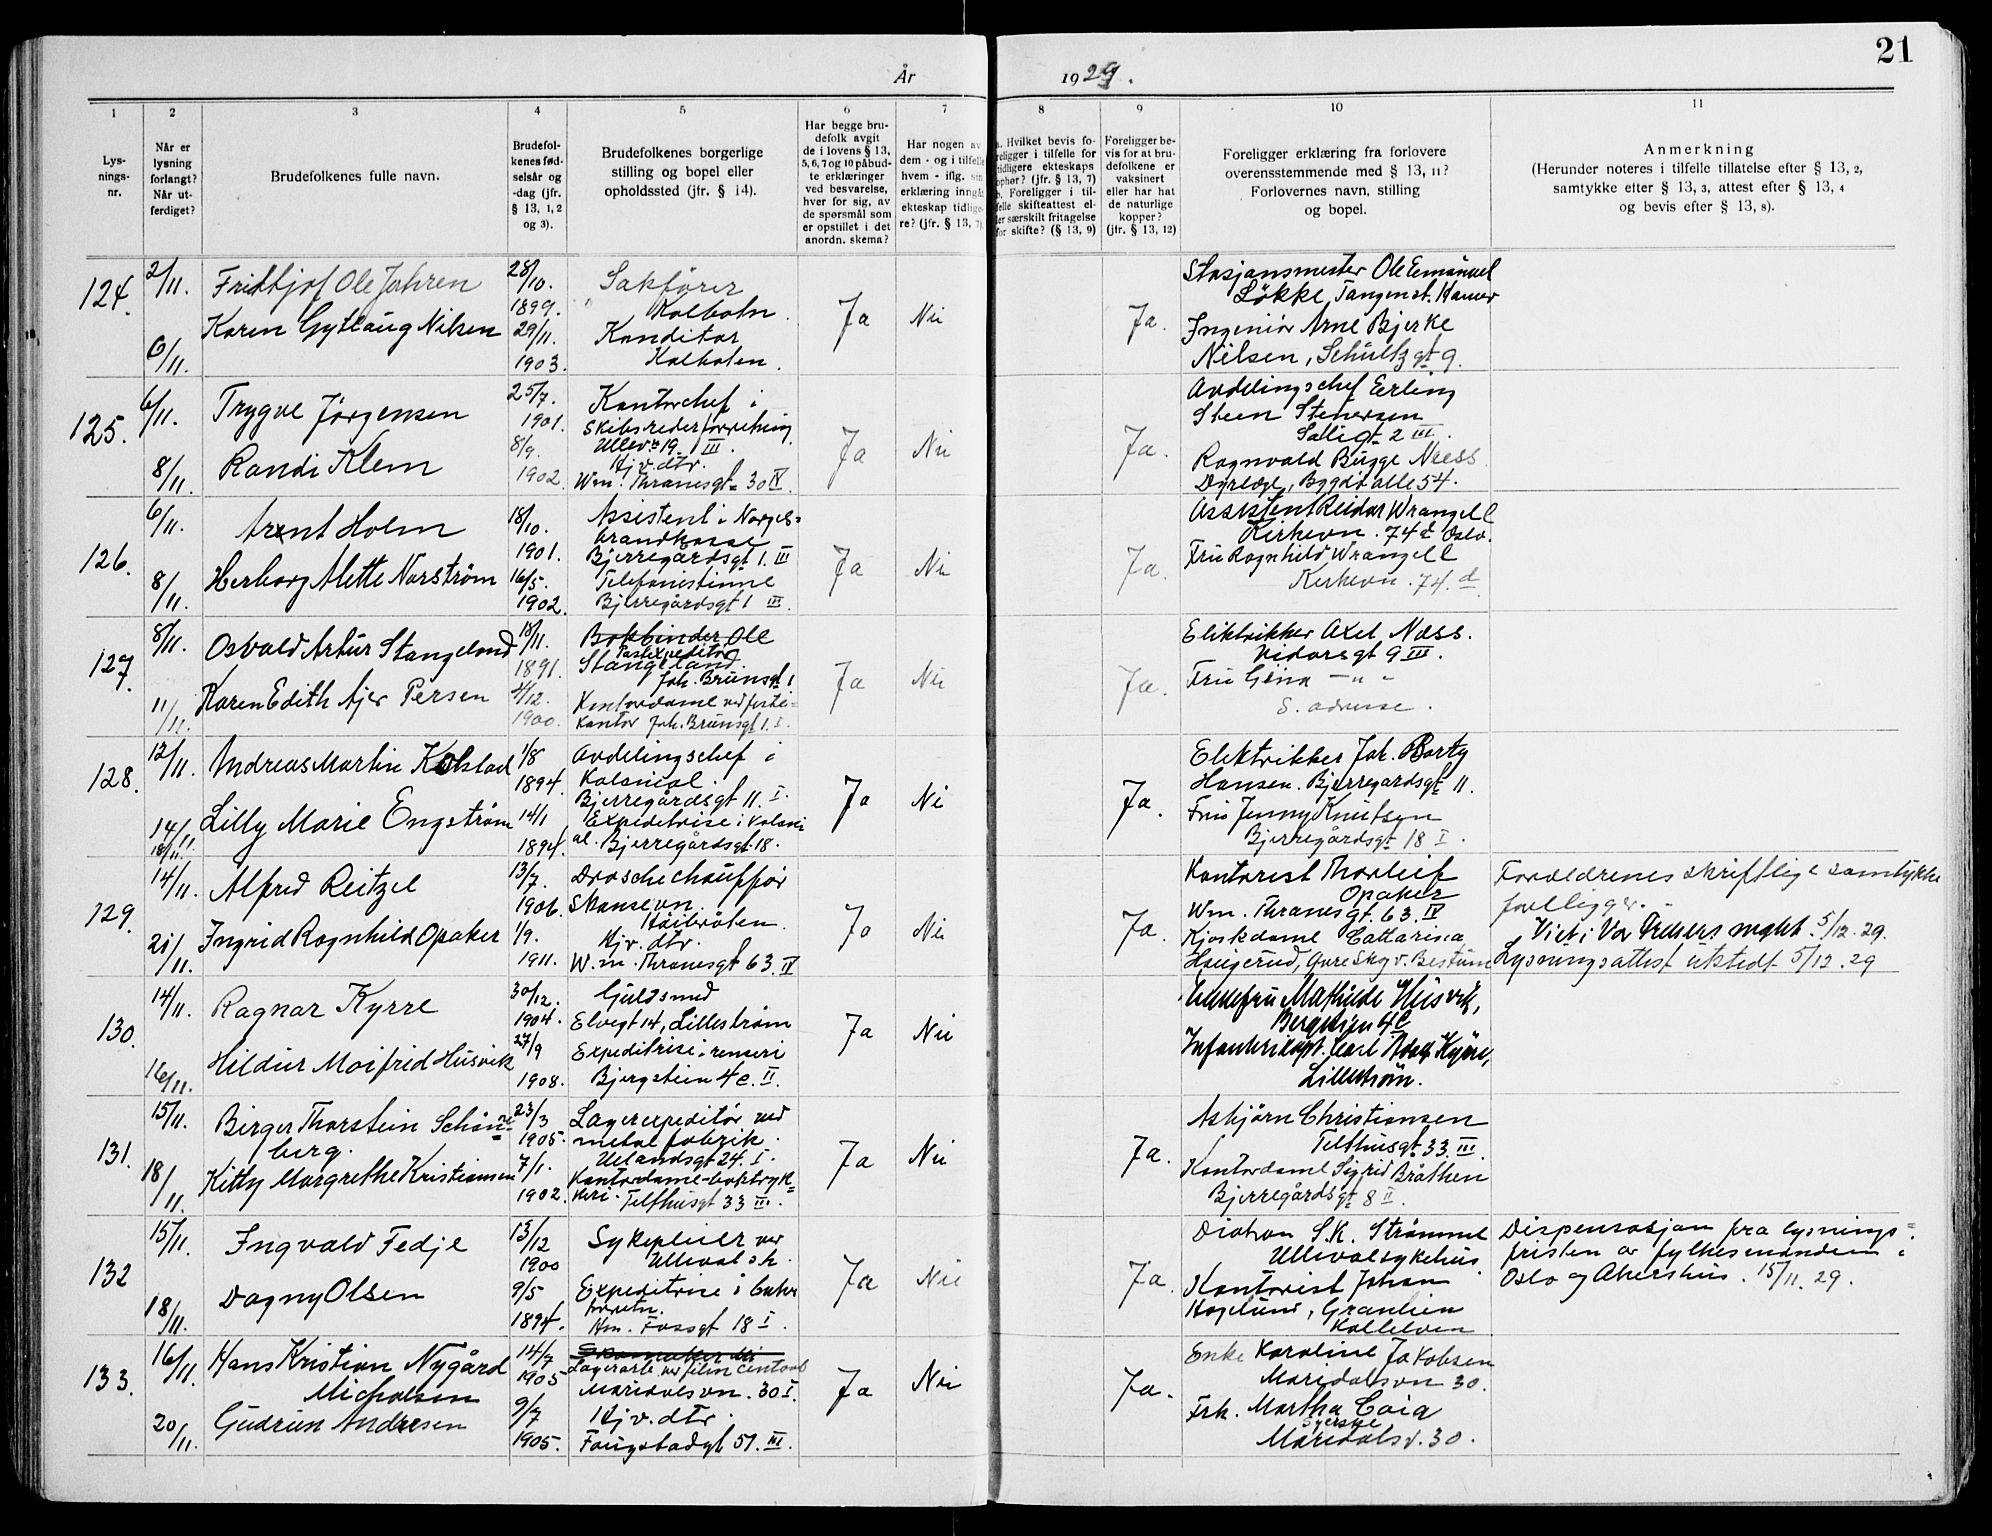 21
År 1929.
1 2 3 4 5 6 7 8 9 10 11
Lys-
nings-
nr.
Når er
lysning
forlangt?
Når ut-
ferdiget?
Brudefolkenes fulle navn.
Brudefol-
kenes fød-
selsår og
-dag (jfr.
§ 13, 1, 2
og 3).
Brudefolkenes borgerlige
stilling og bopel eller
opholdssted (jfr. § 14).
Har begge bru-
defolk avgit
de i lovens § 13,
5, 6, 7 og 10 påbud-
te erklæringer
ved besvarelse,
hver for sig, av
de spørsmål som
er opstillet i det
anordn. skema?
Har nogen av
dem - og i tilfelle
hvem - iflg. sin
erklæring inngåt
ekteskap tidlige-
re? (jfr. § 13, 7)
a. Hvilket bevis fo-
religger i tilfelle for
tidligere ekteskaps
ophør? (jfr. § 13, 7)
b. Foreligger i til-
felle skifteattest el-
ler særskilt fritagelse
for skifte? (§ 13, 9)
Foreligger be-
vis for at bru-
defolkene er
vaksinert
eller har hat
de naturlige
kopper?
(jfr. § 13, 12)
Foreligger erklæring fra forlovere
overensstemmende med § 13, 11?
Forlovernes navn, stilling
og bopel.
Anmerkning
(Herunder noteres i tilfelle tillatelse efter § 13, 2,
samtykke efter § 13, 3, attest efter § 13, 4
og bevis efter § 13, 8).
124.
2/11.
6/11.
Fridtjof Ole Jahren
Karen Gytlaug Nilsen
28/10.
1899.
29/11.
1903.
Sakfører
Kolbotn.
Konditor
Kolboten.
Ja
Nei
Ja.
Stasjonsmester Ole Emanuel
Løkke, Tangen st. Hamar
Ingeniør Arne Bjerke
Nilsen, Schultzgt 9.
125.
6/11.
8/11.
Trygve Jørgensen
Randi Klem
25/7.
1901.
8/9.
1902.
Kontorchef i
Skibsrederforretning
Ullev.v. 19. III.
Hjv. dtr.
Wm. Thranesgt 30 IV.
Ja
Nei
Ja.
Avdelingschef Erling
Steen Stenersen
Balligt 2 III.
Ragnvald Bugge Næss
Dyrlæge, Bygdø alle 54.
126.
6/11.
8/11.
Arent Holm
Herborg Alette Norstrøm
18/10.
1901.
16/5.
1902.
Assistent i Norges
brandkasse
Bjerregårdsgt 1. III
Telefonistinne
Bjerregårdsgt 1 III.
Ja
Nei
Ja.
Assistent Reidar Wrangell
Kirkevn. 74 d Oslo.
Fru Ragnhild Wrangell
Kirkevn. 74. d
127.
8/11.
11/11.
Osvald Artur Stangeland
Karen Edith Ajer Persen
18/11.
1891.
4/12.
1900.
Bokbinder Ole
Postexpeditør
Stangeland.
Joh. Brunsgt 1
Kontordame ved
kontor Joh. Brunsgt 1. I.
Ja
Nei
Ja.
Elektrikker Axel Næss.
Vidarsgt 9 III.
Fru Gina - " -
S. adresse.
128.
12/11.
14/11.
18/11.
Andreas Martin Kolstad
Lilly Marie Engstrøm
1/8
1894.
14/1
1894.
Avdelingschef i
Kolonial
Bjerregårdsgt 11. I.
Expeditrise i koloni
al. Bjerregårdsgt. 18.
Ja
Nei
Ja.
Elektrikker Joh. Borty
Hansen. Bjerregårdsgt 11.
Fru Jenny Knutsen
Bjerregårdsgt 18 I.
129.
14/11.
21/11.
Alfred Reitzel
Ingrid Ragnhild Opaker
13/7.
1906.
1/9.
1911.
Droschechauffør
Skansevn.
Høibråten.
Hjv. dtr.
W.m. Thranesgt 63. IV
Ja
Nei
Ja.
Kontorist Thorleif
Opaker
Wm. Thranesgt. 63. IV
Kjoskdame Cattarina
Haugerud, Øvre Skogv. Bestum
Forældrenes skriftlige samtykke
foreligger.
Viet i Vor Frelsers meght. 5/12. 29.
Lysningsattest utstedt 5/12. 29
130.
14/11.
16/11.
Ragnar Kyrre
Hildur Moifrid Husvik
30/12.
1904.
27/9
1908.
Guldsmed
Elvegt 14, Lillestrøm
Expeditrise i renseri
Bjergstien 4c. II.
Ja
Nei
Enkefru Mathilde Husvik,
Bergstien 4c
Infanterikapt. Carl Adolf Kyrre,
Lillestrøm.
131.
15/11.
18/11.
Birger Thorstein Schøne-
berg.
Kitty Margrethe Kristiansen
23/3
1905.
7/1.
1902.
Lagerexpeditør ved
metalfabrik.
Uelandsgt 24. I.
Kontordame-boktryk-
keri. Telthusgt 33 III.
Ja
Nei
Ja.
Asbjørn Christiansen
Telthusgt 33. III.
Kontordame Sigrid Bråthen
Bjerregårdsgt 8 II.
132
15/11.
18/11.
Ingvald Fedje
Dagny Olsen
13/12
1900
9/5
1894.
Sykepleier ver
Ullevål s.h.
Expeditrise i
forretn.
Hm. Fossgt 18 I.
Ja
Nei
Ja.
Diakon S.K. Strømme
Ullevålsykehus
Kontorist Johan
Hoglund, Granlien
Kallelven
Dispensasjon fra lysnings-
fristen av fylkesmanden i
Oslo og Akershus. 15/11. 29.
133.
16/11.
20/11.
Hans Kristian Nygård
Michalsen
Gudrun Andresen
14/7
1905
9/7
1905.
Skomaker
Lagerarb. ved film central
Maridalsvn. 30 I.
Hjv. dtr.
Fougstadgt 51. III.
Ja
Nei
Ja.
Enke Karoline Jakobsen
Maridalsvn 30.
Frk. Martha Coia
Syerske
Maridalsv. 30.